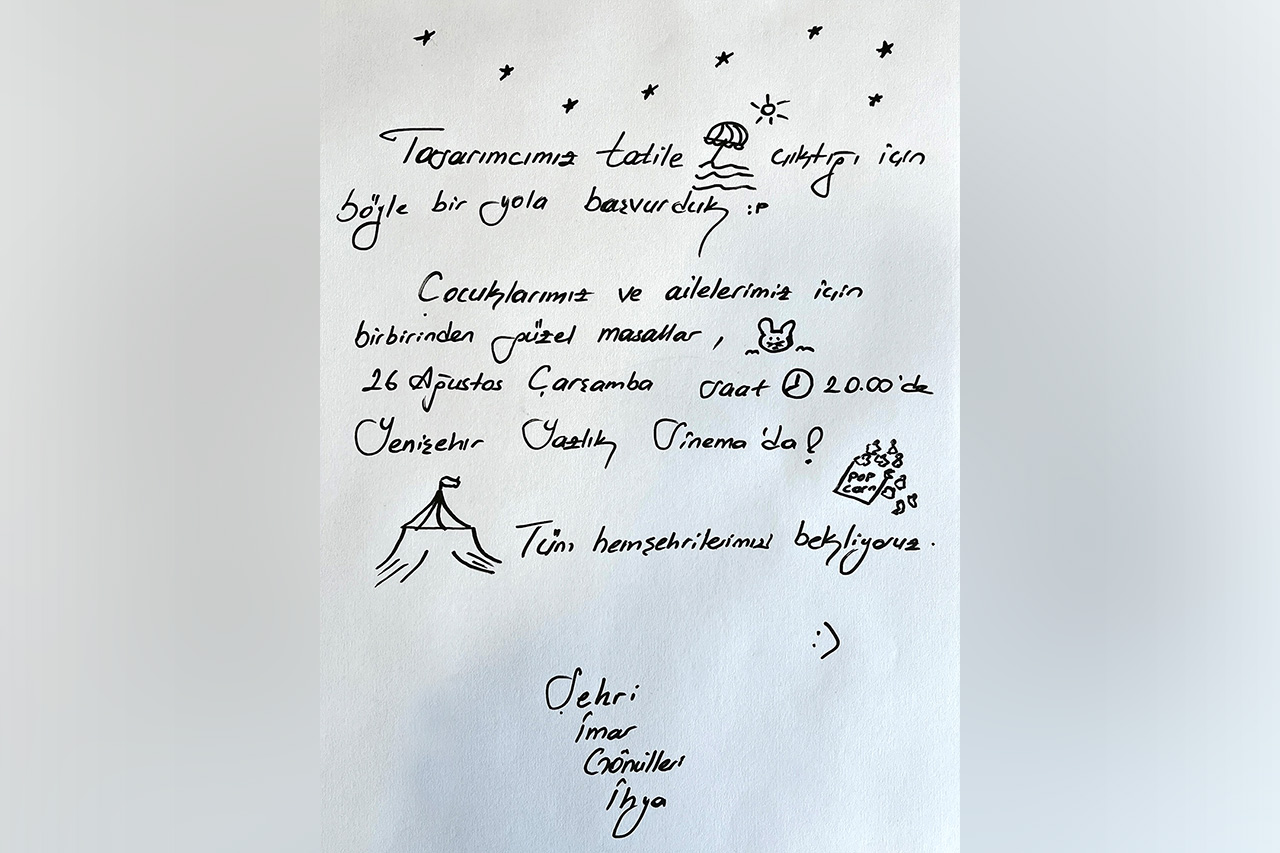 Tasarımcımız tatile çıktığı için
böyle bir yola başvurduk :P
Çocuklarımız ve ailelerimiz için
birbirinden güzel masallar,
26 Ağustos Çarşamba saat 20.00'de
Yenişehir Yazlık Sinema'da!
POP
corn
Tüm hemşehrilerimizi bekliyoruz.
:)
Şehri
İmar
Gönülleri
İhya